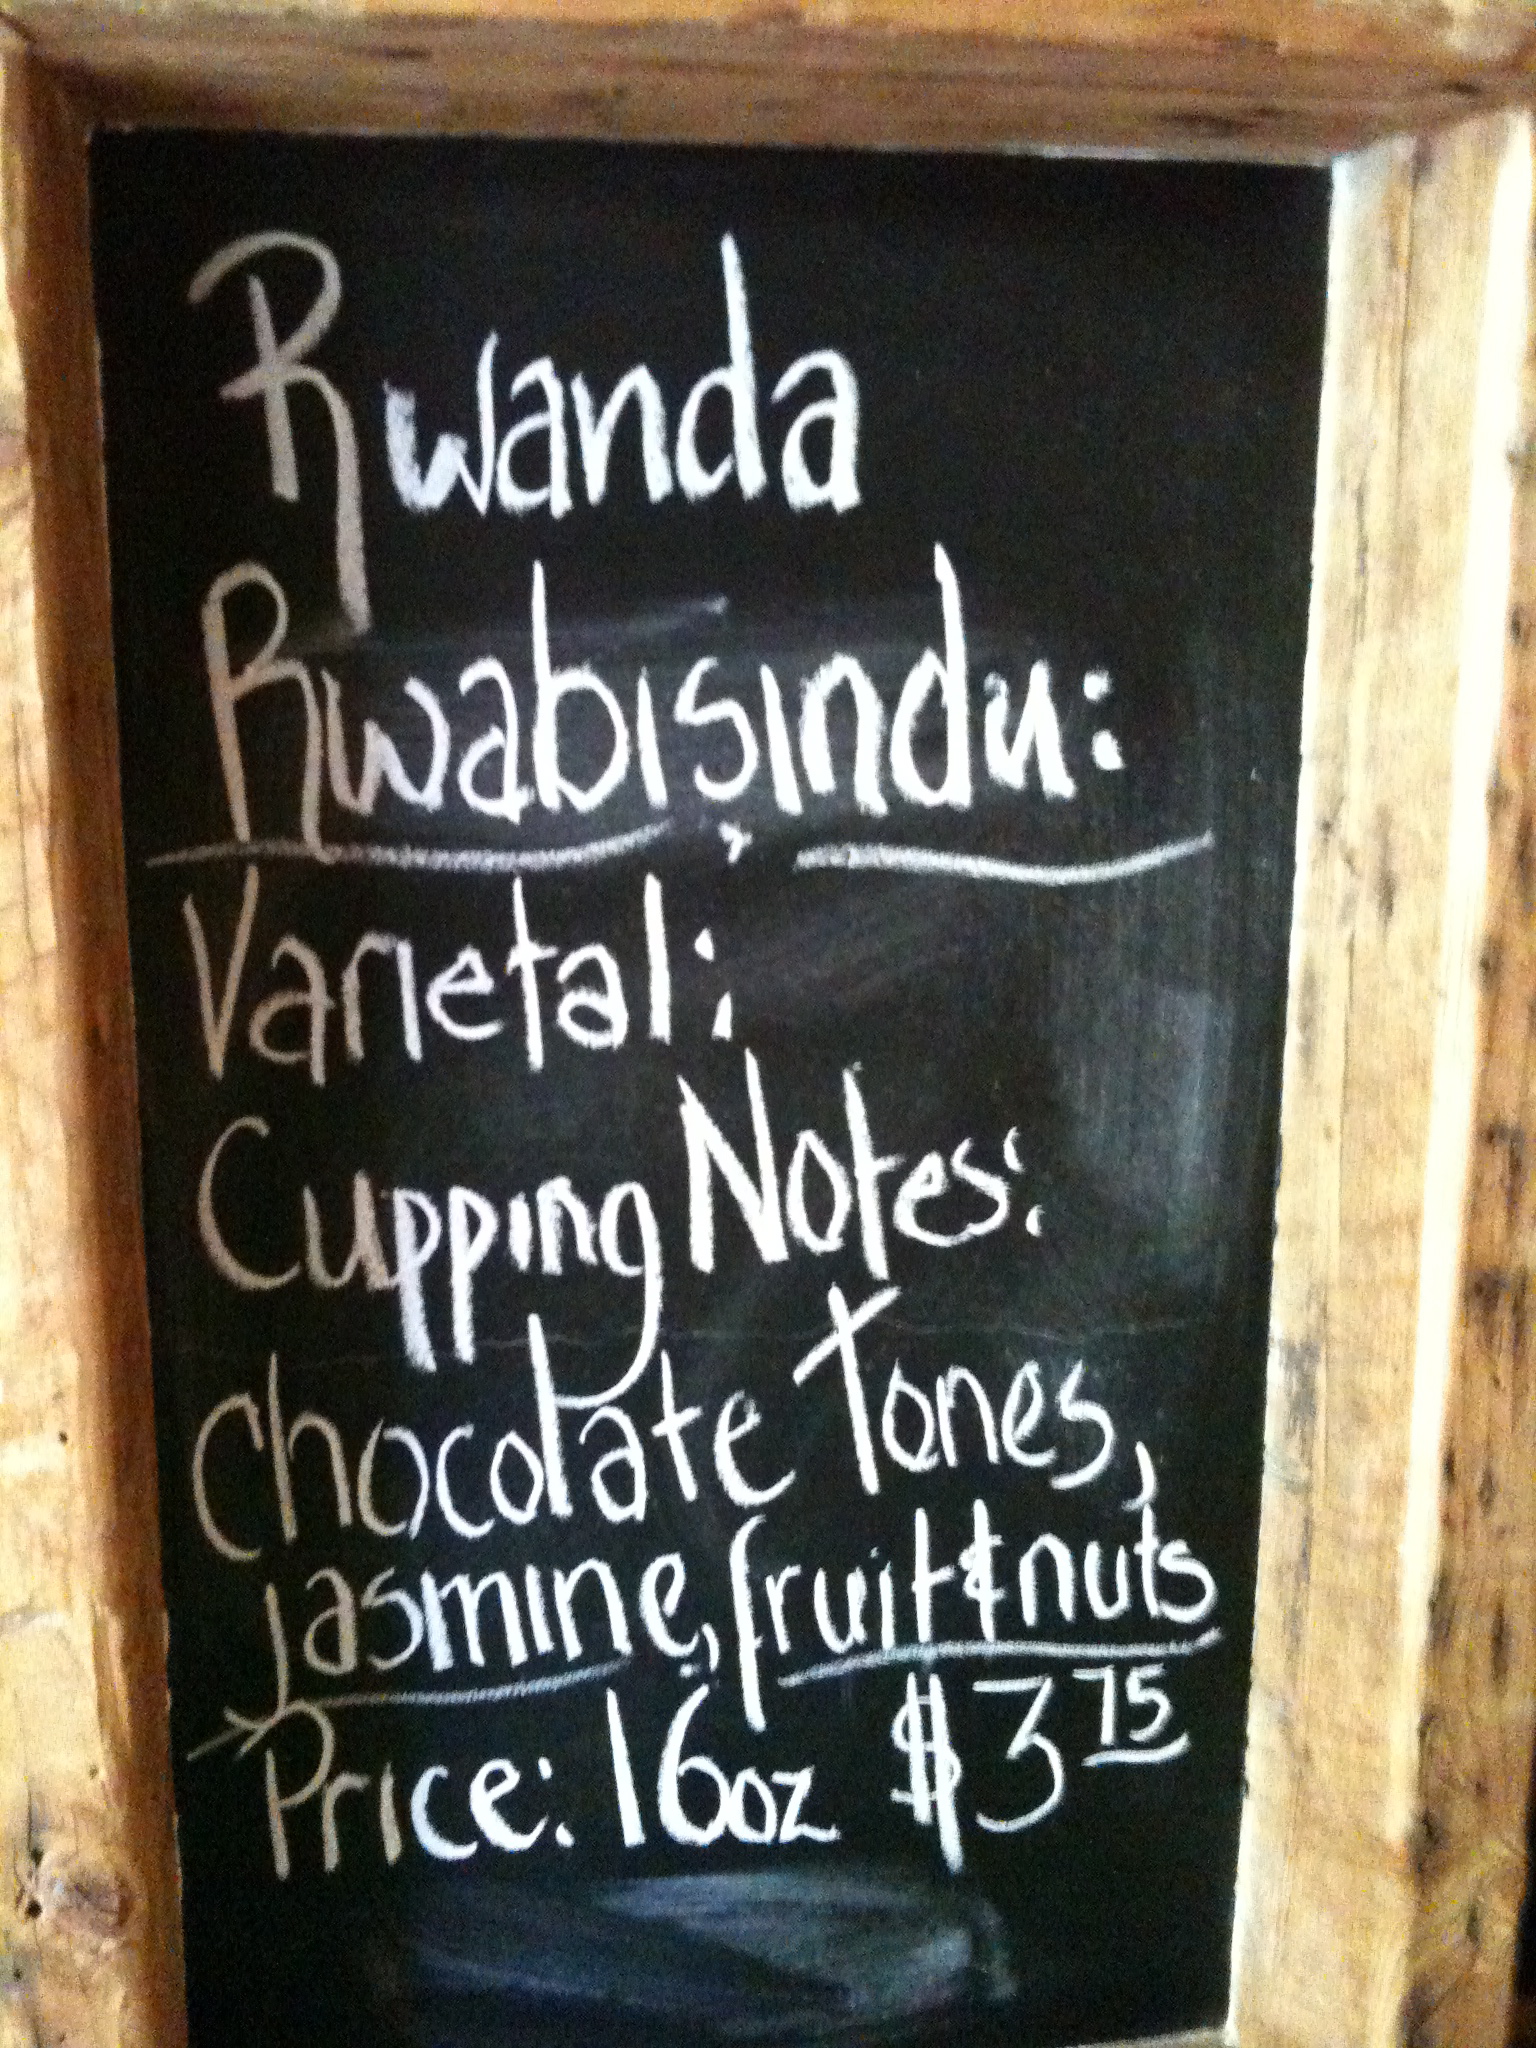 Rwanda
Rwabisindu:
Varietal:
Cupping Notes:
Chocolate Tones,
jasmine, fruit & nuts
Price: 16oz $3 75